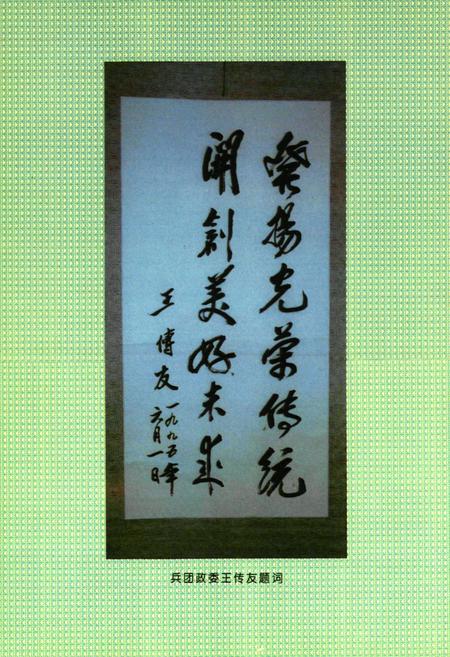 發揚光荣传統
開創美好未来
王傳友
一九九五年
六月一日
兵团政委王传友题词